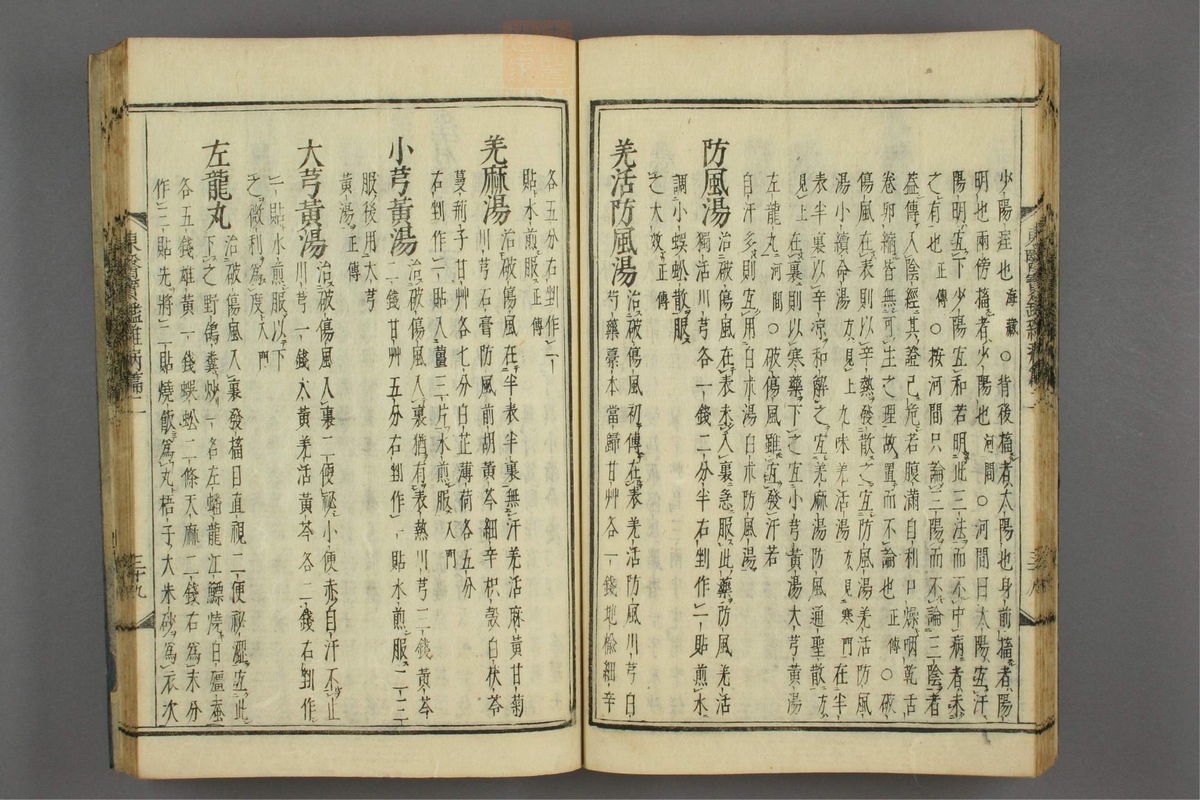 少陽痓也海藏○背後搐者太陽也身前搐者陽
明也兩傍搐者少陽也河間○河間曰太陽宜汗
陽明宜下少陽宜和若明此三法而不中病者未
之有也正傳○按河間只論三陽而不論三陰者
蓋傳入陰經其證已危若腹滿自利口燥咽乾舌
卷卵縮皆無可生之理故置而不論也正傳○破
傷風在表則以辛熱發散之宜防風湯羌活防風
湯小續命湯方見上九味羌活湯方見寒門在半
表半裏以辛涼和解之宜羌麻湯防風通聖散方
見上在裏則以寒藥下之宜小芎黃湯大芎黃湯
左龍丸河間○破傷風雖宜發汗若
自汗多則宜用白朮湯白朮防風湯
防風湯治破傷風在表未入裏急服此藥防風羌活
獨活川芎各一錢二分半右剉作一貼煎水
調小蜈蚣散服
之大效正傳
羌活防風湯治破傷風初傳在表羌活防風川芎白
芍藥藁本當歸甘艸各一錢地楡細辛
各五分右剉作一
貼水煎服正傳
羌麻湯治破傷風在半表半裏無汗羌活麻黃甘菊
川芎石膏防風前胡黃芩細辛枳殼白茯苓
蔓荊子甘艸各七分白芷薄荷各五分
右剉作一貼入薑三片水煎服入門
小芎黃湯治破傷風入裏猶有表熱川芎三錢黃芩
二錢甘艸五分右剉作一貼水煎服二三
服後用大芎
黃湯正傳
大芎黃湯治破傷風入裏二便秘小便赤自汗不止
川芎一錢大黃羌活黃芩各二錢右剉作
一貼水煎服以下
之微利爲度入門
左龍丸治破傷風入裏發搐目直視二便秘澀宜此
下之野鴿糞炒一名左蟠龍江鰾燒白殭蚕
各五錢雄黃一錢蜈蚣二條天麻二錢右爲末分
作三貼先將二貼燒飯爲丸梧子大朱砂爲衣次
東醫寶鑑雜病篇二
三十九